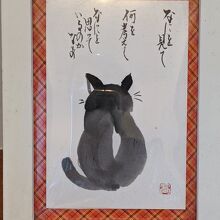 なにを見て
何を考えて
なにを思って
いるのか
なあ